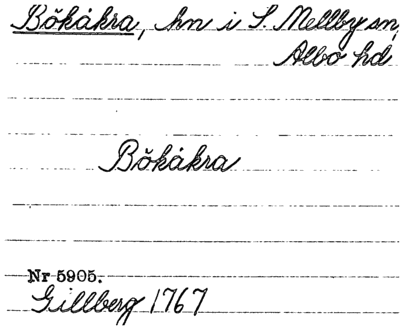 Bökåkra, hn i S. Mellby sn,
Albo hd
Bökåkra
Nr 5905.
Gillberg 1767